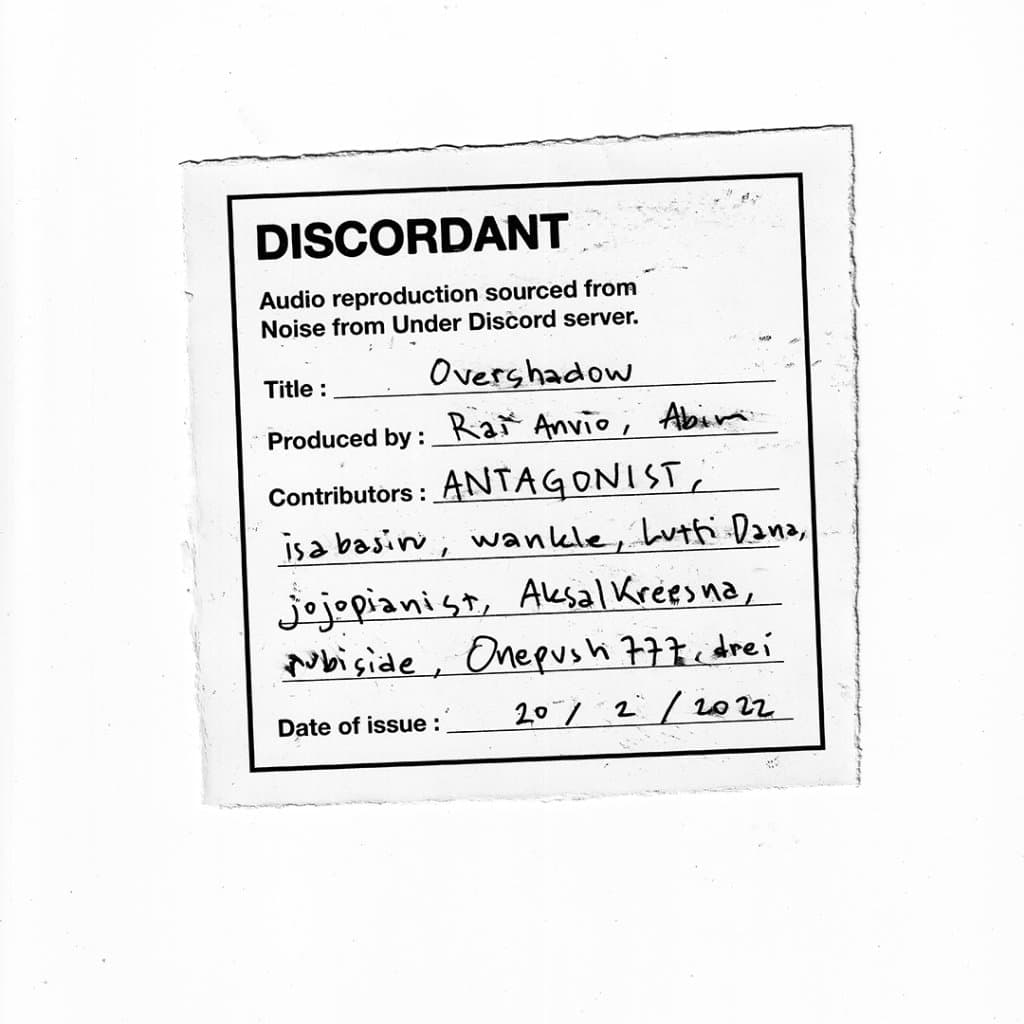 DISCORDANT
Audio reproduction sourced from
Noise from Under Discord server.
Title : Overshadow
Produced by : Anvio, Abim
Contributors : ANTAGONIST,
isabasin, wankle, Lutfi Dana,
jojopianist, AksalKreesna,
rubiside, Onepush777, drei
Date of issue : 20 / 2 / 2022